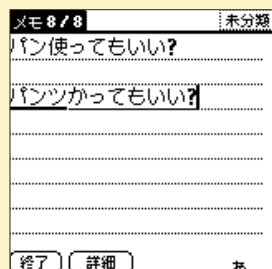 メモ 8 / 8 未分類
パン使ってもいい?
パンツかってもいい?
終了 詳細 あ